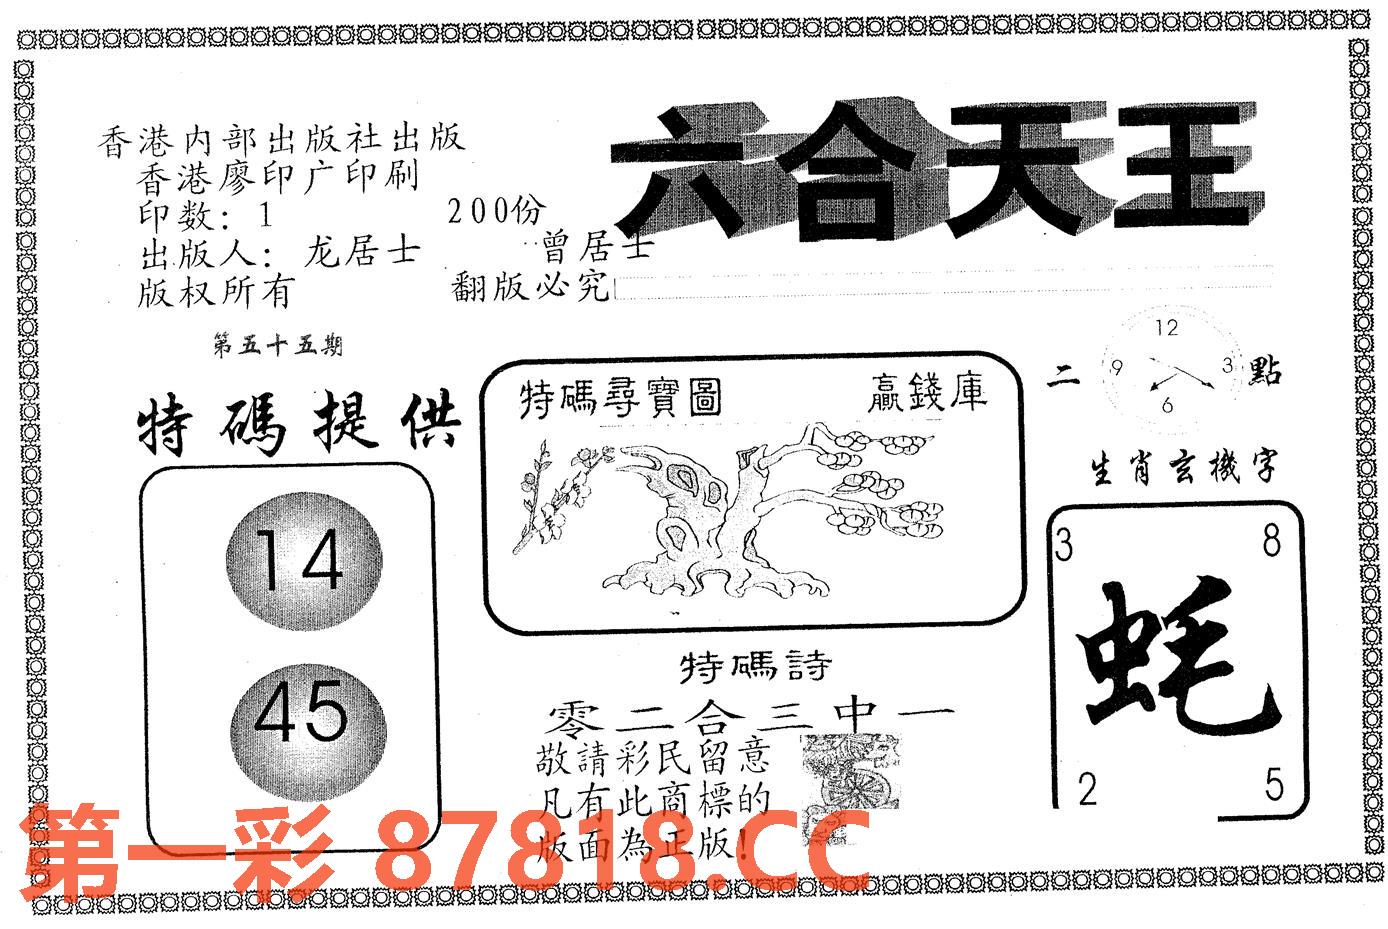 六合天王
香港内部出版社出版
香港廖印广印刷
印数：1 200份
出版人：龙居士 曾居士
版权所有 翻版必究
第五十五期
特碼提供
14
45
特碼尋寶圖 贏錢庫
二 12 9 3 6 點
生肖玄機字
3 8
蚝
2 5
特碼詩
零二合三中一
敬請彩民留意
凡有此商標的
版面為正版！
第一彩 87818.CC